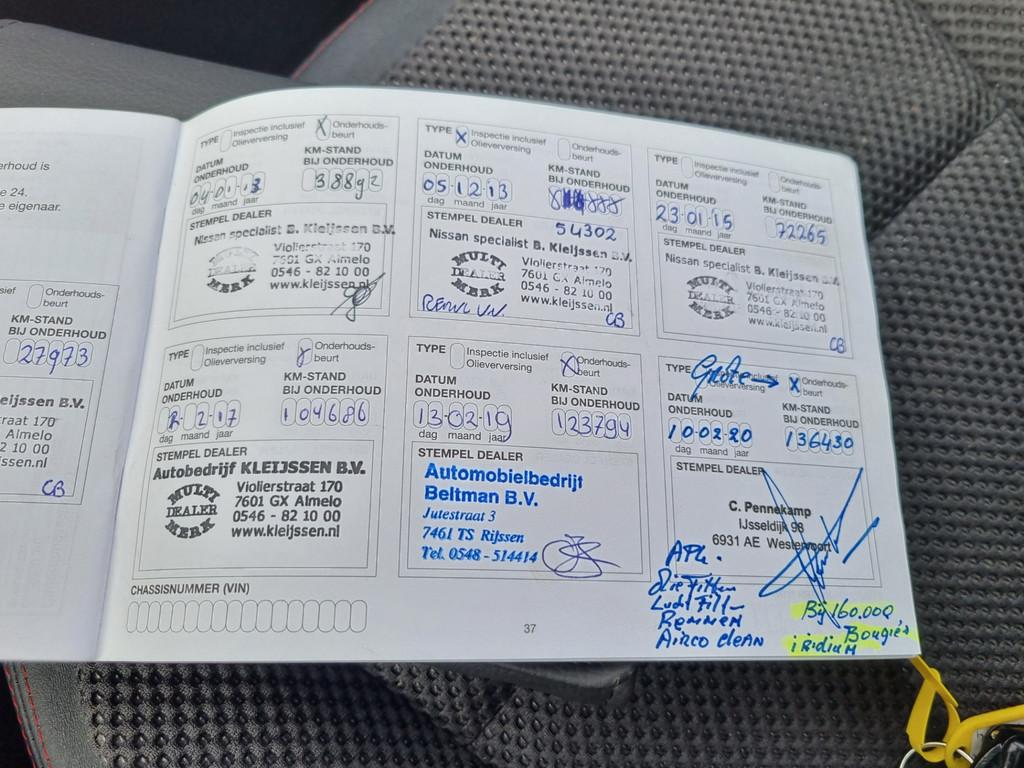 erhoud is
e 24.
e eigenaar.
sief Onderhouds-
beurt
KM-STAND
BIJ ONDERHOUD
27973
eijssen B.V.
traat 170
Almelo
2 10 00
ssen.nl
CB
TYPE Inspectie inclusief X Onderhouds-
Olieverversing beurt
DATUM KM-STAND
ONDERHOUD BIJ ONDERHOUD
04 01 13 38892
dag maand jaar
STEMPEL DEALER
Nissan specialist B. Kleijssen B.V.
MULTI DEALER MERK
Violierstraat 170
7601 GX Almelo
0546 - 82 10 00
www.kleijssen.nl
TYPE X Inspectie inclusief Onderhouds-
Olieverversing beurt
DATUM KM-STAND
ONDERHOUD BIJ ONDERHOUD
05 12 13
dag maand jaar
STEMPEL DEALER 54302
Nissan specialist B. Kleijssen B.V.
MULTI DEALER MERK
Violierstraat 170
7601 GX Almelo
0546 - 82 10 00
www.kleijssen.nl
CB
TYPE Inspectie inclusief Onderhouds-
Olieverversing beurt
DATUM KM-STAND
ONDERHOUD BIJ ONDERHOUD
23 01 15 72265
dag maand jaar
STEMPEL DEALER
Nissan specialist B. Kleijssen B.V.
MULTI DEALER MERK
Violierstraat 170
7601 GX Almelo
0546 - 82 10 00
www.kleijssen.nl
CB
TYPE Inspectie inclusief Onderhouds-
Olieverversing beurt
DATUM KM-STAND
ONDERHOUD BIJ ONDERHOUD
2-17 104686
dag maand jaar
STEMPEL DEALER
Autobedrijf KLEIJSSEN B.V.
MULTI DEALER MERK
Violierstraat 170
7601 GX Almelo
0546 - 82 10 00
www.kleijssen.nl
TYPE Inspectie inclusief X Onderhouds-
Olieverversing beurt
DATUM KM-STAND
ONDERHOUD BIJ ONDERHOUD
13-02-19 123794
dag maand jaar
STEMPEL DEALER
Automobielbedrijf
Beltman B.V.
Jutestraat 3
7461 TS Rijssen
Tel. 0548 - 514414
TYPE Grote → X Onderhouds-
Olieverversing beurt
DATUM KM-STAND
ONDERHOUD BIJ ONDERHOUD
10-02-20 136430
dag maand jaar
STEMPEL DEALER
C. Pennekamp
IJsseldijk 98
6931 AE Westervoort
APK.
Olie Filter
Lucht Filter
Remmen
Airco clean
Bij 160.000
Bougie's
iridium
CHASSISNUMMER (VIN)
37